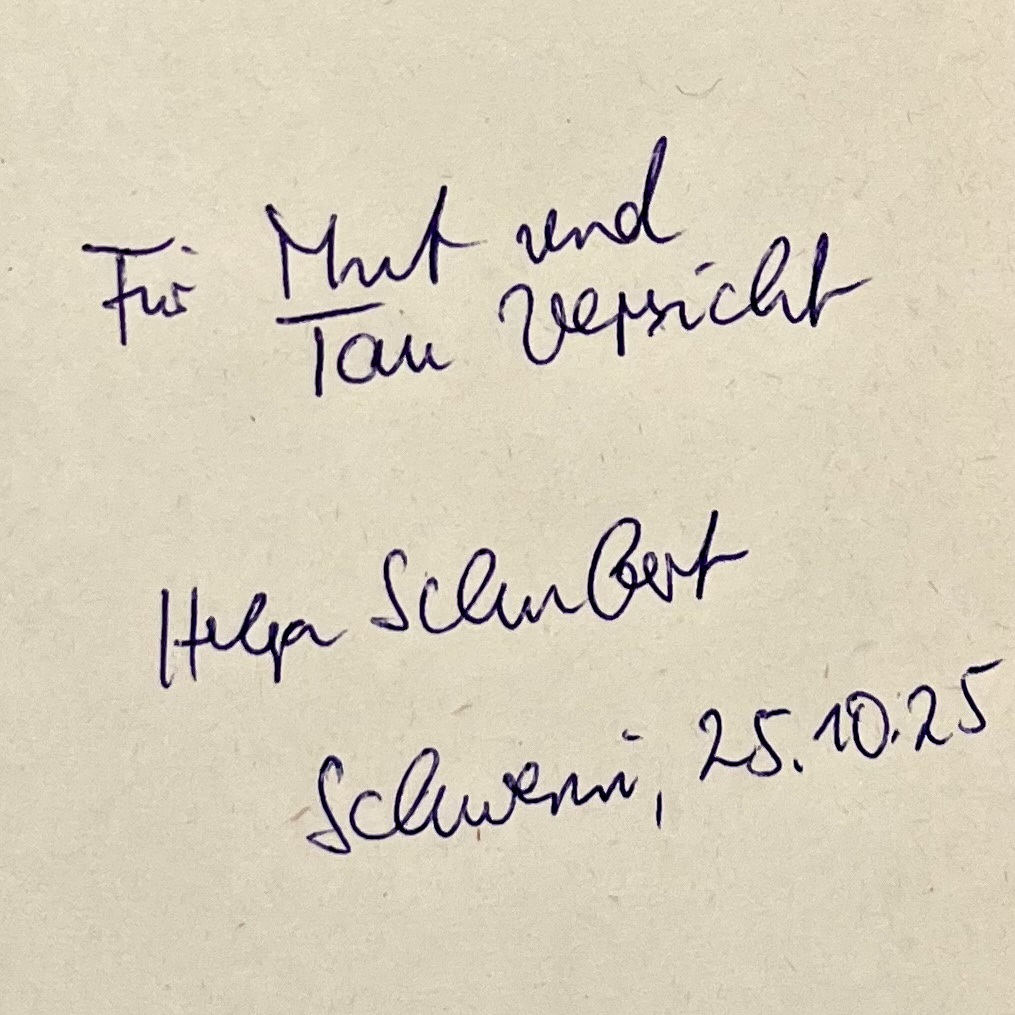 Für Mut und
Tau Versicht
Helga Schubert
Schwerin, 25.10.25